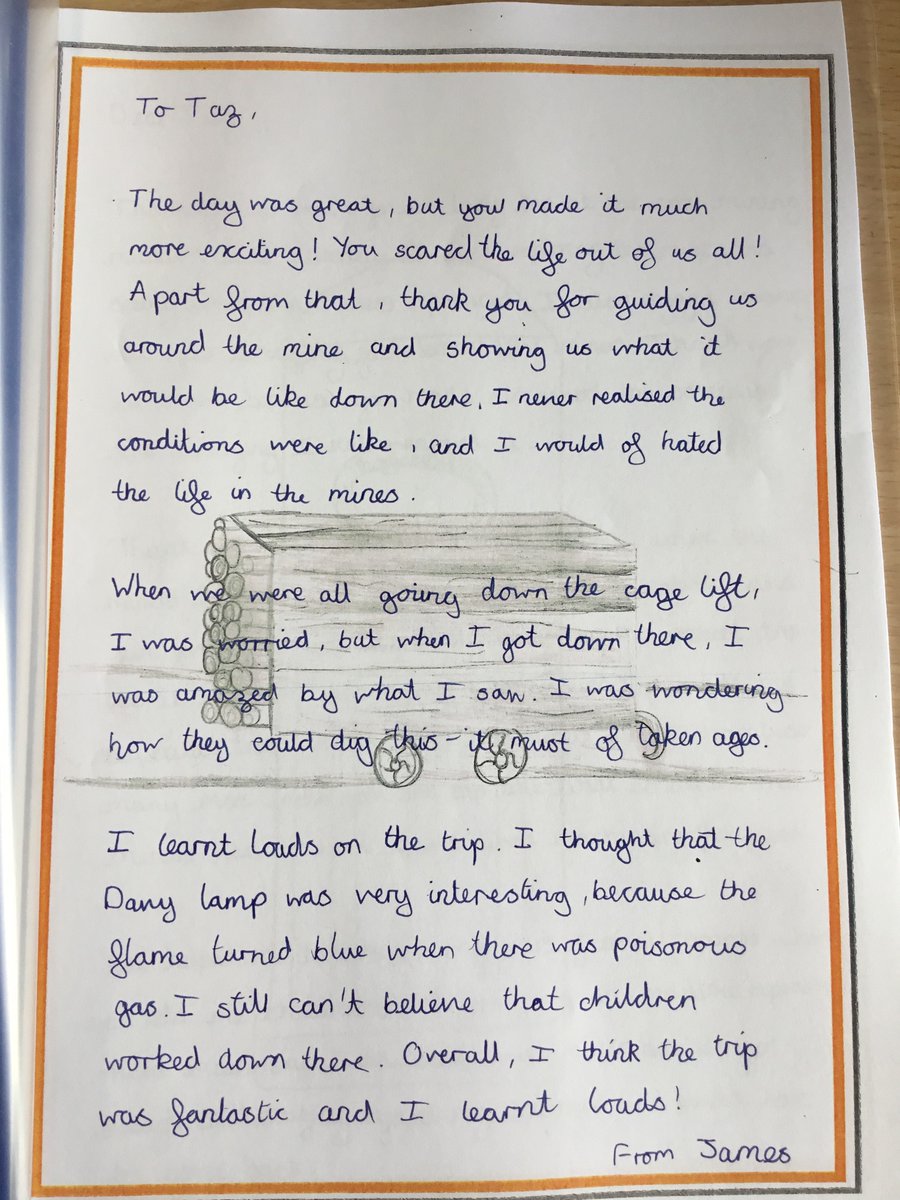 To Taz,
The day was great, but you made it much
more exciting! You scared the life out of us all!
Apart from that, thank you for guiding us
around the mine and showing us what it
would be like down there. I never realised the
conditions were like, and I would of hated
the life in the mines.
When we were all going down the cage lift,
I was worried, but when I got down there, I
was amazed by what I saw. I was wondering
how they could dig this - it must of taken ages.
I learnt loads on the trip. I thought that the
Davy lamp was very interesting, because the
flame turned blue when there was poisonous
gas. I still can't believe that children
worked down there. Overall, I think the trip
was fantastic and I learnt loads!
From James